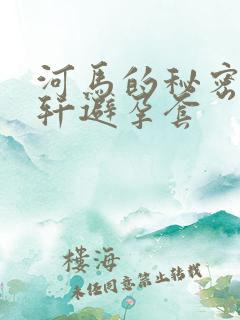 河马的秘密
轩避孕套
樓海
未经同意禁止转载